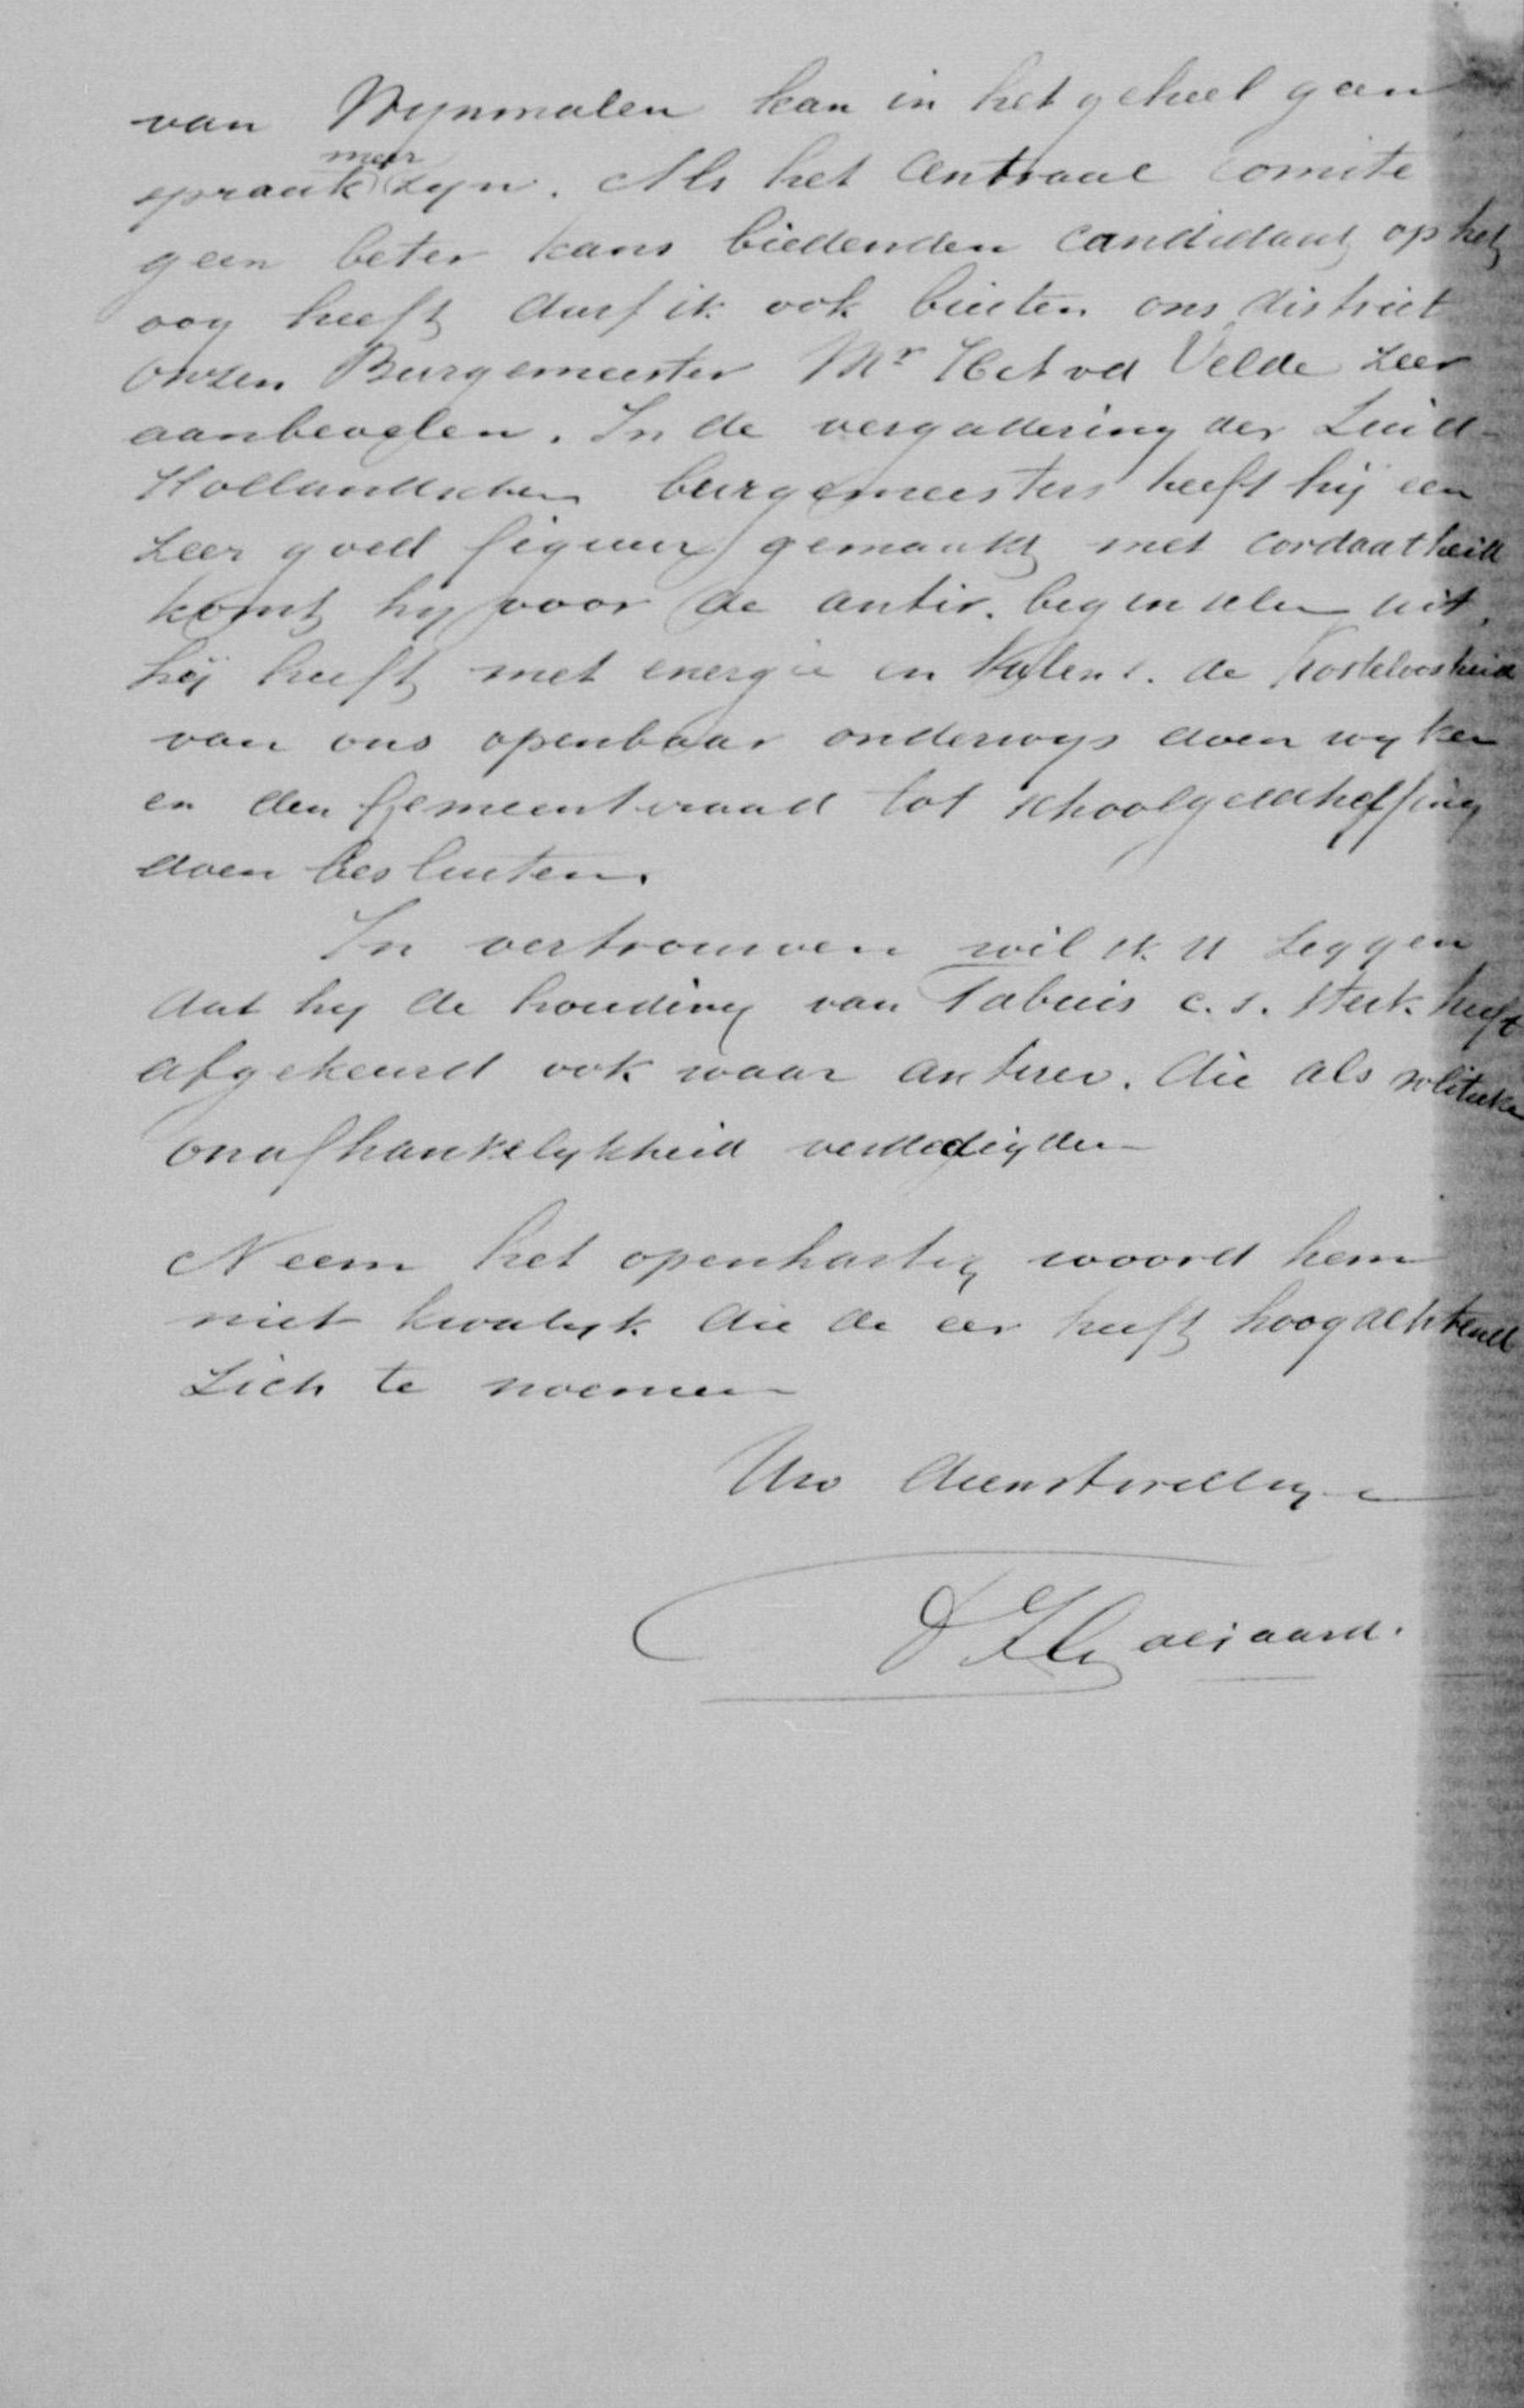 van Wynmalen kan in het geheel geen
meer
spraak zyn. Als het Centraal Comite
geen beter kans biedenden Candidaat op het
oog heeft durf ik ook buiten ons district
Onzen Burgemeester Mr vd Velde zeer
aanbevelen. In de vergadering der Zuid-
Hollandschen burgemeesters heeft hij een
zeer goed figuur gemaakt met cordaatheid
komt hy voor de antir. beginselen uit,
hij heeft met energie en talent de kosteloosheid
van ons openbaar onderwys doen wyken
en den Gemeentraad tot schoolgeldheffing
doen besluiten.
In vertrouwen wil ik U zeggen
dat hy de houding van Tabuis c.s. sterk heeft
afgekeurd ook waar antirev. die als politieke
onafhankelykheid verdedigden
Neem het openhartig woord hem
niet kwalyk die de eer heeft hoogachtend
zich te noemen
Uw dienstwillige